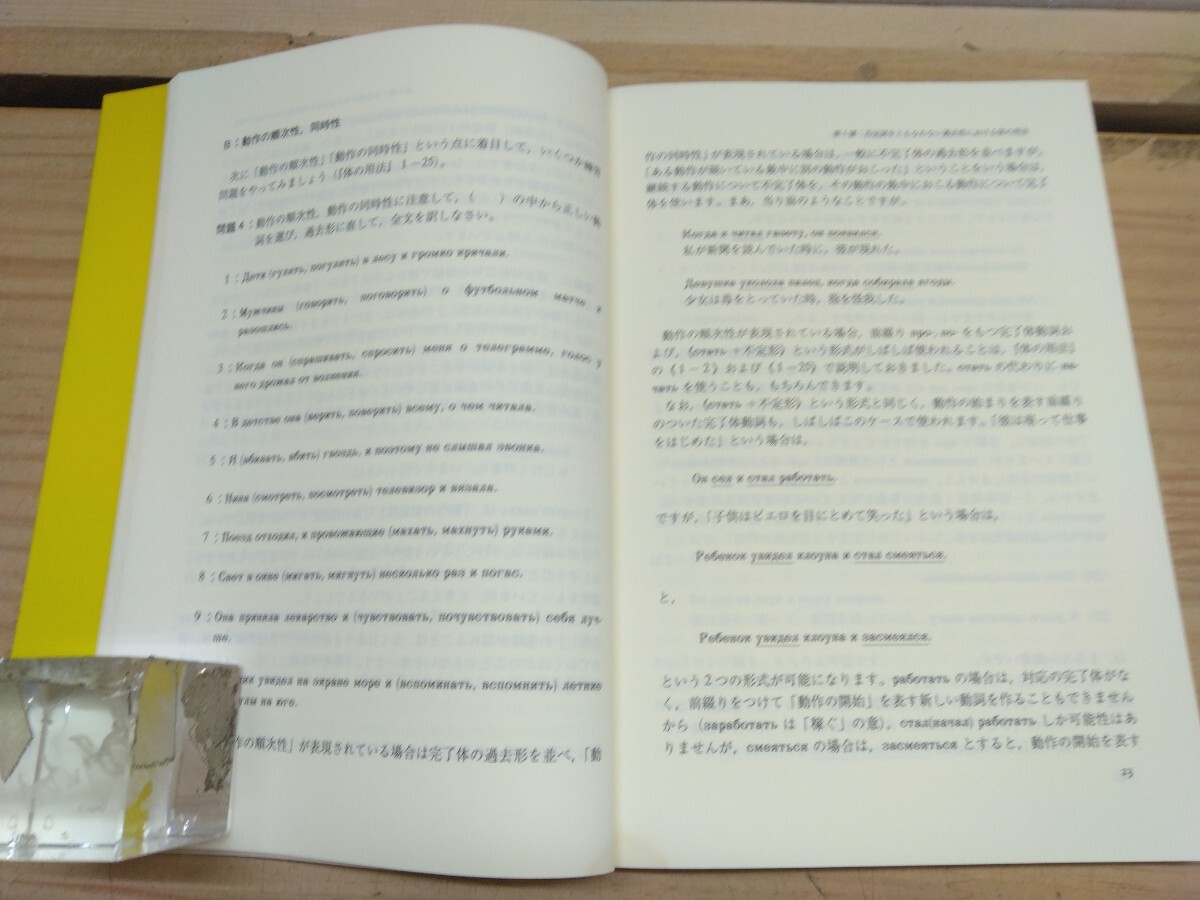 B：動作の順次性，同時性
次に「動作の順次性」「動作の同時性」という点に着目して，いくつか練習
問題をやってみましょう（『体の用法』1－25）。
問題4：動作の順次性，動作の同時性に注意して，（　）の中から正しい動
詞を選び，過去形に直して，全文を訳しなさい。
1：Дети (гулять, погулять) в лесу и громко кричали.
2：Мужчины (говорить, поговорить) о футбольном матче и
разошлись.
3：Когда он (спрашивать, спросить) меня о телеграмме, голос у
него дрожал от волнения.
4：В детстве она (верить, поверить) всему, о чем читала.
5：Я (вбивать, вбить) гвоздь, и поэтому не слышал звонка.
6：Нина (смотреть, посмотреть) телевизор и вязала.
7：Поезд отходил, и провожающие (махать, махнуть) руками.
8：Свет в окне (мигать, мигнуть) несколько раз и погас.
9：Она приняла лекарство и (чувствовать, почувствовать) себя луч-
ше.
увидел на экране море и (вспоминать, вспомнить) летние
на юге.
作の順次性」が表現されている場合は完了体の過去形を並べ，「動
作の同時性」が表現されている場合は，一般に不完了体の過去形を並べますが，
「ある動作が続いている最中に別の動作がおこった」ということをいう場合は，
継続する動作について不完了体を，その動作の最中におこる動作について完了
体を使います。まあ，当り前のようなことですが。
Когда я читал газету, он появился.
私が新聞を読んでいた時に，彼が現れた。
Девушка уколола палец, когда собирала ягоды.
少女は苺をとっていた時，指を怪我した。
動作の順次性が表現されている場合，前綴り про- по- をもつ完了体動詞お
よび，(стать＋不定形) という形式がしばしば使われることは，『体の用法』
の（1－2）および（1－25）で説明しておきました。стать の代わりに на-
чать を使うことも，もちろんできます。
なお，(стать＋不定形) という形式と同じく，動作の始まりを表す前綴り
のついた完了体動詞も，しばしばこのケースで使われます。「彼は座って仕事
をはじめた」という場合は，
Он сел и стал работать.
ですが，「子供はピエロを目にとめて笑った」という場合は，
Ребенок увидел клоуна и стал смеяться.
と，
Ребенок увидел клоуна и засмеялся.
という2つの形式が可能になります。работать の場合は，対応の完了体がな
く，前綴りをつけて「動作の開始」を表す新しい動詞を作ることもできません
から（заработать は「稼ぐ」の意），стал(начал) работать しか可能性はあ
りませんが，смеяться の場合は，засмеяться とすると，動作の開始を表す
23